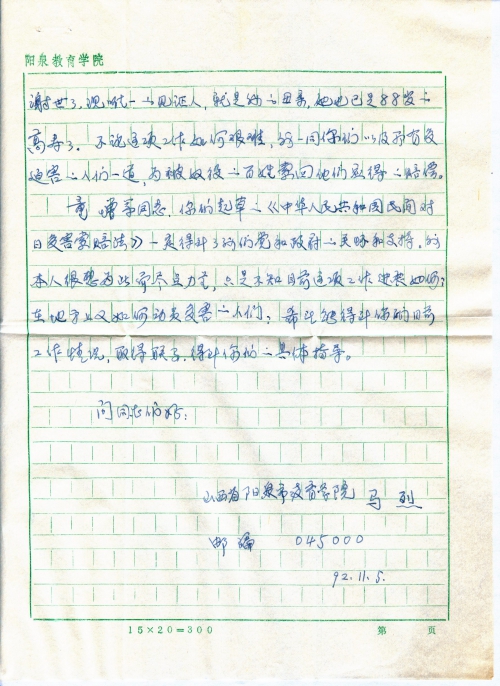 阳泉教育学院
谢世了，现唯一的见证人，就是她的母亲，她也已是88岁的
高寿了。不论这项工作如何艰难，我一同你们以及所有受
迫害的人们一道，为被奴役的百姓索回他们应得的赔偿。
童增等同志，你们起草的《中华人民共和国民间对
日受害索赔法》一定得到了我们党和政府的关怀和支持，我
本人很想为此尽点力量，只是不知目前这项工作进展如何；
在地方上又如何动员受害的人们；希望能得到你们目前
工作情况，取得联系，得到你们的具体指导。
问同志们好：
山西省阳泉市教育学院 马烈
邮编 045000
92.11.5.
15×20=300
第 页